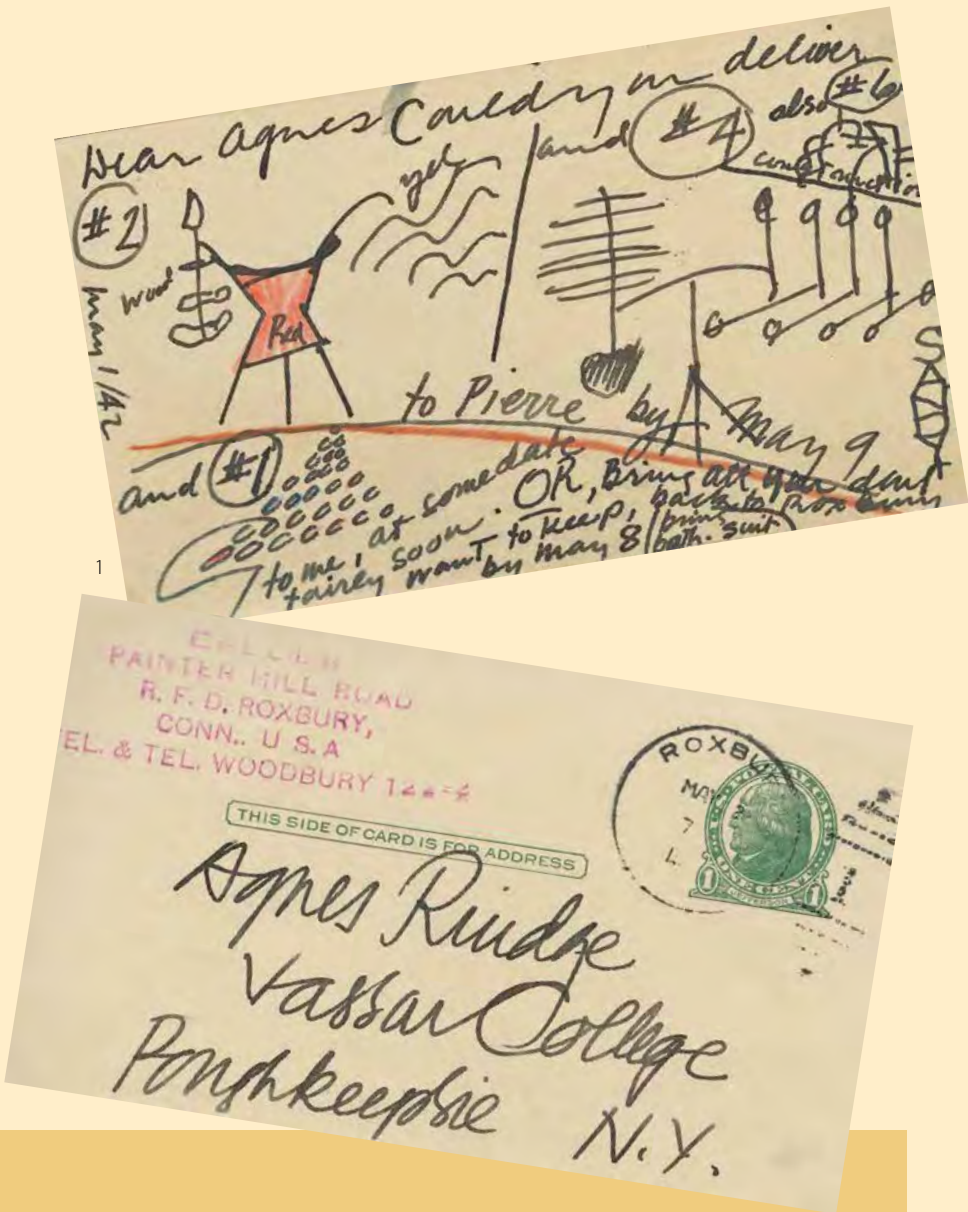 Dear Agnes Could you deliver
#2
yel
and #4 also #6
construction
wood
Red
May 1/42
to Pierre by May 9
SANDY
and #1
to me, at somedate
fairly soon. OR, Bring all you dont
want to keep, back to Rox
by May 8 bring
bath. suit
1
CALDER
PAINTER HILL ROAD
R. F. D. ROXBURY,
CONN.. U S. A
TEL. & TEL. WOODBURY
ROXBU
MAY
7
THIS SIDE OF CARD IS FOR ADDRESS
1 ONE CENT 1
JEFFERSON
Agnes Rindge
Vassar College
Poughkeepsie N.Y.